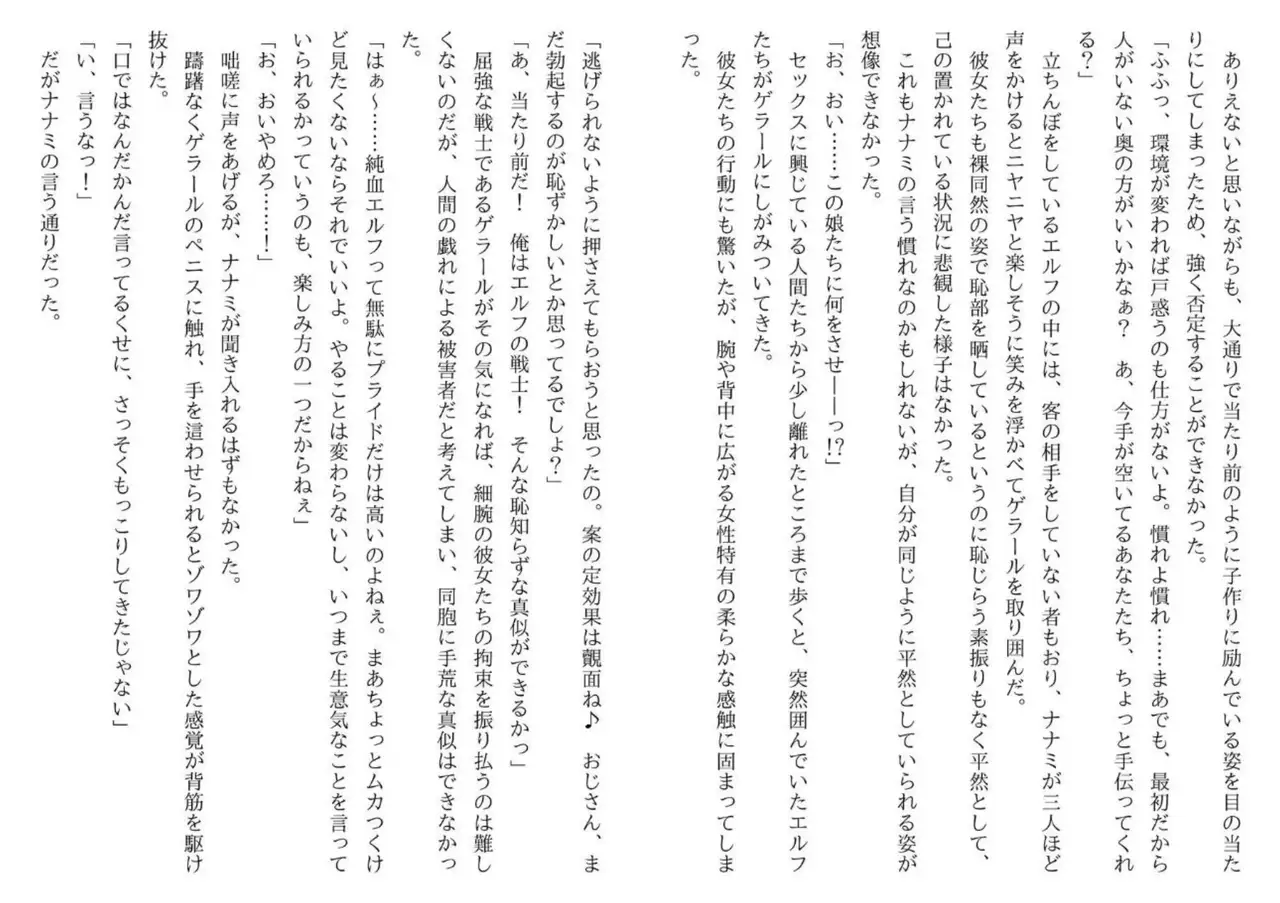 ありえないと思いながらも、大通りで当たり前のように子作りに励んでいる姿を目の当た
りにしてしまったため、強く否定することができなかった。
「ふふっ、環境が変われば戸惑うのも仕方がないよ。慣れよ慣れ……まあでも、最初だから
人がいない奥の方がいいかなぁ?　あ、今手が空いてるあなたたち、ちょっと手伝ってくれ
る?」
立ちんぼをしているエルフの中には、客の相手をしていない者もおり、ナナミが三人ほど
声をかけるとニヤニヤと楽しそうに笑みを浮かべてゲラールを取り囲んだ。
彼女たちも裸同然の姿で恥部を晒しているというのに恥じらう素振りもなく平然として、
己の置かれている状況に悲観した様子はなかった。
これもナナミの言う慣れなのかもしれないが、自分が同じように平然としていられる姿が
想像できなかった。
「お、おい……この娘たちに何をさせ――っ!?」
セックスに興じている人間たちから少し離れたところまで歩くと、突然囲んでいたエルフ
たちがゲラールにしがみついてきた。
彼女たちの行動にも驚いたが、腕や背中に広がる女性特有の柔らかな感触に固まってしま
った。
「逃げられないように押さえてもらおうと思ったの。案の定効果は覿面ね♪　おじさん、ま
だ勃起するのが恥ずかしいとか思ってるでしょ?」
「あ、当たり前だ!　俺はエルフの戦士!　そんな恥知らずな真似ができるかっ」
屈強な戦士であるゲラールがその気になれば、細腕の彼女たちの拘束を振り払うのは難し
くないのだが、人間の戯れによる被害者だと考えてしまい、同胞に手荒な真似はできなかっ
た。
「はぁ～……純血エルフって無駄にプライドだけは高いのよねぇ。まあちょっとムカつくけ
ど見たくないならそれでいいよ。やることは変わらないし、いつまで生意気なことを言って
いられるかっていうのも、楽しみ方の一つだからねぇ」
「お、おいやめろ……!」
咄嗟に声をあげるが、ナナミが聞き入れるはずもなかった。
躊躇なくゲラールのペニスに触れ、手を這わせられるとゾワゾワとした感覚が背筋を駆け
抜けた。
「口ではなんだかんだ言ってるくせに、さっそくもっこりしてきたじゃない」
「い、言うなっ!」
だがナナミの言う通りだった。